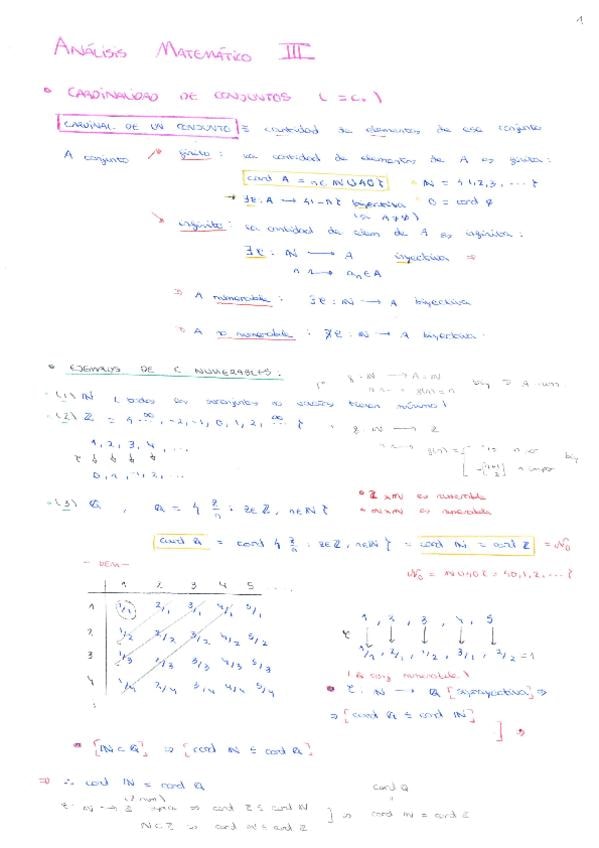 1
ANÁLISIS MATEMÁTICO III
• CARDINALIDAD DE CONJUNTOS
CARDINAL DE UN CONJUNTO ≡ cantidad de elementos de ese conjunto
A conjunto finito: la cantidad de elementos de A es finita:
card A = n ∈ ℕ∪{0} ℕ = {1,2,3, ...}
biyectiva 0 = card ∅
infinito: la cantidad de elem de A es infinita:
∃ : ℕ → A inyectiva ⇒
n → aₙ ∈ A
A numerable: ∃ : ℕ → A biyectiva
A no numerable: ∄ : ℕ → A biyectiva
• EJEMPLOS DE C NUMERABLES:
(1) ℕ (todos los subconjuntos no vacíos tienen mínimo)
(2) ℤ = { ..., -2, -1, 0, 1, 2, ... } ℕ → ℤ
1, 2, 3, 4, ...
0, 1, -1, 2, ...
• ℤ×ℕ es numerable
(3) ℚ, ℚ = { z/n : z∈ℤ, n∈ℕ } • ℕ×ℕ es numerable
card ℚ = card { z/n : z∈ℤ, n∈ℕ } = card ℕ = card ℤ = ℵ₀
- DEM - = ℕ∪{0} = {0,1,2, ...}
1 2 3 4 5 ...
1 1/1 2/1 3/1 4/1 5/1
2 1/2 2/2 3/2 4/2 5/2
3 1/3 2/3 3/3 4/3 5/3
4 1/4 2/4 3/4 4/4 5/4
1, 2, 3, 4, 5
1/1, 2/1, 1/2, 3/1, 2/2 = 1
: ℕ → ℚ [suprayectiva] ⇒
⇒ [card ℚ ≤ card ℕ]
• [ℕ⊂ℚ] ⇒ [card ℕ ≤ card ℚ]
⇒ ∴ card ℕ = card ℚ
card ℚ
ℕ → ℤ supra ⇒ card ℤ ≤ card ℕ
ℕ⊂ℤ ⇒ card ℕ ≤ card ℤ
⇒ card ℕ = card ℤ